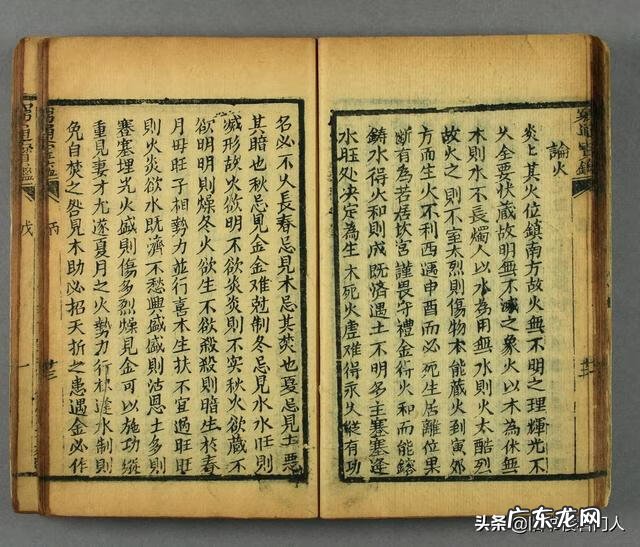 窮通寶鑑
論火
炎上其火位鎮南方故火無不明之理輝光不
久全要伏藏故明無不滅之象火以木為体無
木則火不長熖火以水為用無水則火太酷烈
故火多則不实太烈則傷物木能藏火到寅夘
方而生火不利西遇申酉而必死生居離位果
斷有為若居坎宮謹畏守禮金得火和而能鎔
鑄水得火和則成既濟遇土不明多主蹇塞逢
水旺处決定為生木死火虛难得永久縱有功
名必不久長春忌見木忌其焚也夏忌見土惡
其暗也秋忌見金金难尅制冬忌見水水旺則
滅形故火欲明不欲炎炎則不实秋火欲藏不
欲明明則燥冬火欲生不欲殺殺則暗生於春
月母旺子相勢力並行喜木生扶不宜過旺旺
則火炎欲水既濟不愁興盛盛則沾恩土多則
蹇塞埋光火盛則傷多烈燥見金可以施功縱
重見妻才尤遂夏月之火勢力行权逢水制則
免自焚之咎見木助必招夭折之患遇金必作
窮通寶鑑
丙
廿三
窮通寶鑑
戊
一
头条
门人
广东龙网